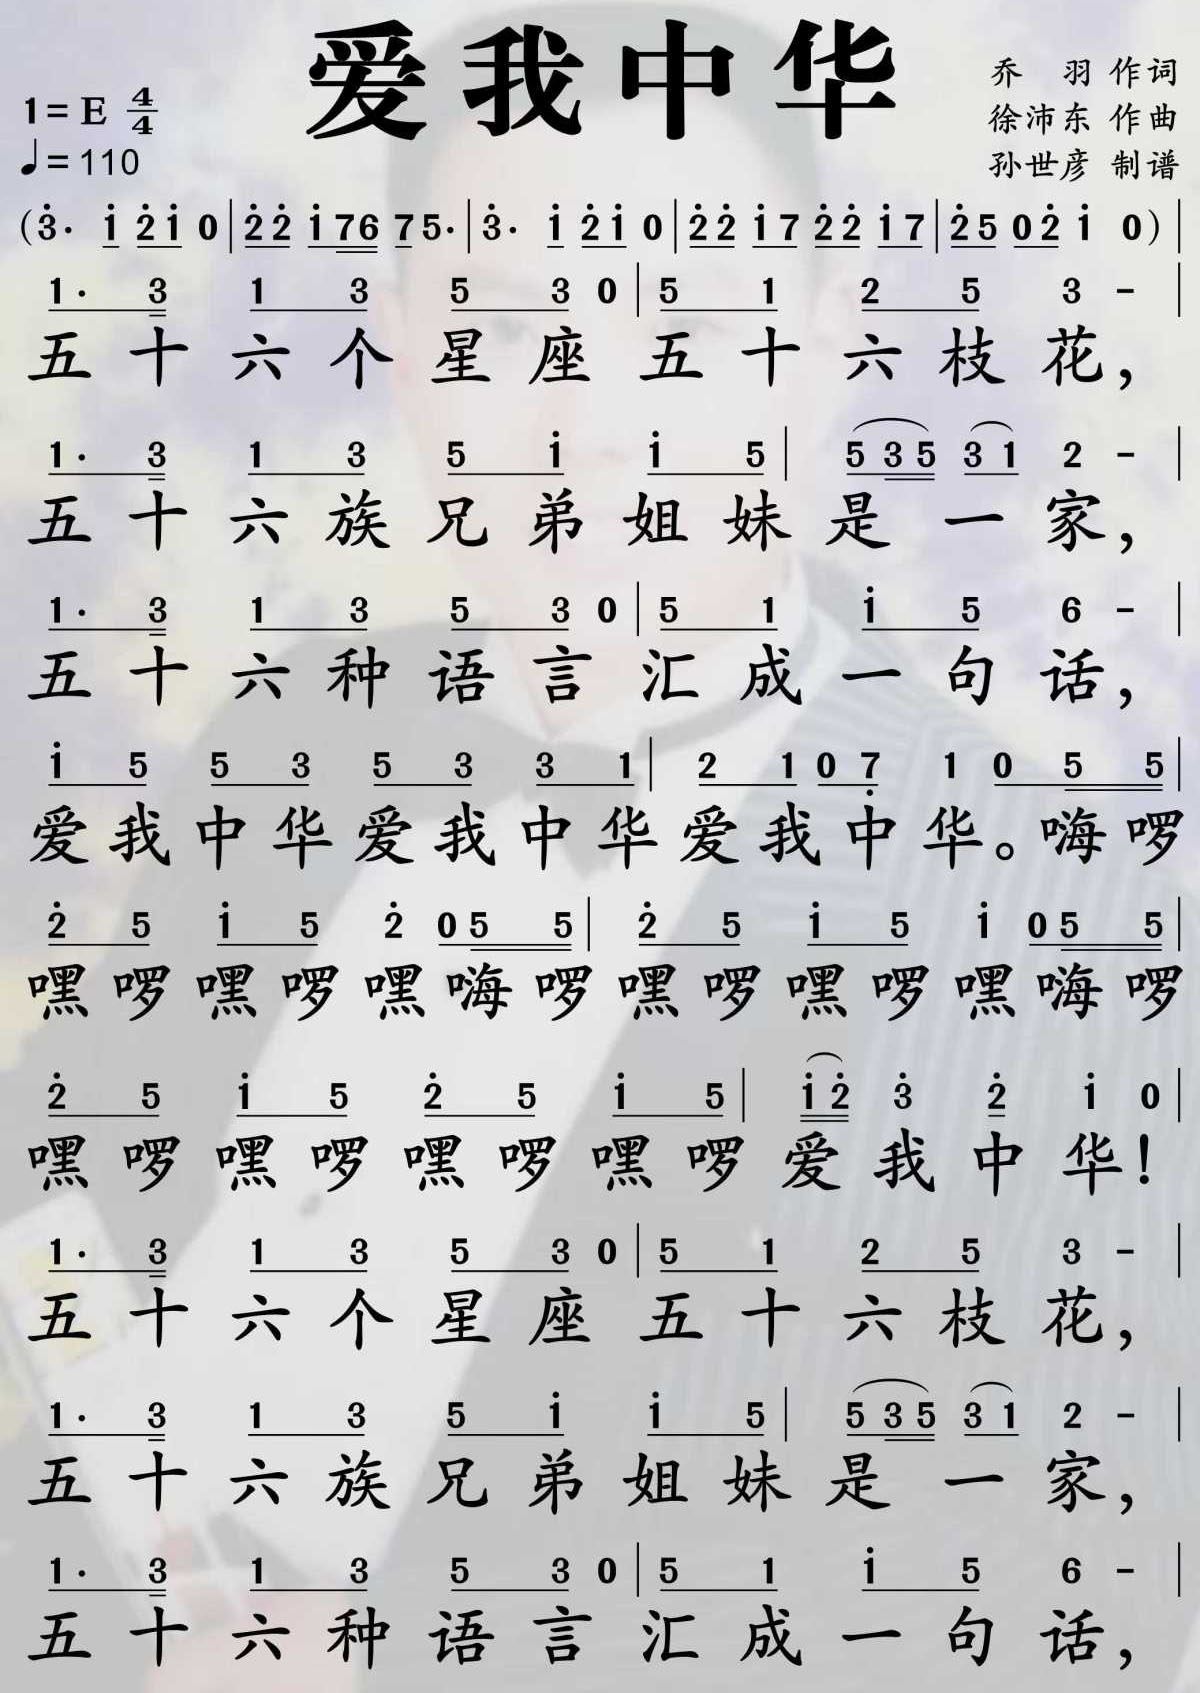 爱我中华
乔 羽 作词
1=E 4/4
徐沛东 作曲
♩=110
孙世彦 制谱
(3̇· i̇ 2̇i̇ 0|2̇2̇ i̇76 75·|3̇· i̇ 2̇i̇ 0|2̇2̇ i̇7 2̇2̇ i̇7|2̇5 02̇ i̇ 0)|
1· 3 1 3 5 3 0|5 1 2 5 3 -|
五十六个星座五十六枝花,
1· 3 1 3 5 i̇ i̇ 5|5 3 5 3 1 2 -|
五十六族兄弟姐妹是一家,
1· 3 1 3 5 3 0|5 1 i̇ 5 6 -|
五十六种语言汇成一句话,
i̇ 5 5 3 5 3 3 1|2 1 0 7̣ 1 0 5 5|
爱我中华爱我中华爱我中华。嗨啰
2̇ 5 i̇ 5 2̇ 0 5 5|2̇ 5 i̇ 5 i̇ 0 5 5|
嘿啰嘿啰嘿嗨啰嘿啰嘿啰嘿嗨啰
2̇ 5 i̇ 5 2̇ 5 i̇ 5|i̇ 2̇ 3̇ 2̇ i̇ 0|
嘿啰嘿啰嘿啰嘿啰爱我中华!
1· 3 1 3 5 3 0|5 1 2 5 3 -|
五十六个星座五十六枝花,
1· 3 1 3 5 i̇ i̇ 5|5 3 5 3 1 2 -|
五十六族兄弟姐妹是一家,
1· 3 1 3 5 3 0|5 1 i̇ 5 6 -|
五十六种语言汇成一句话,